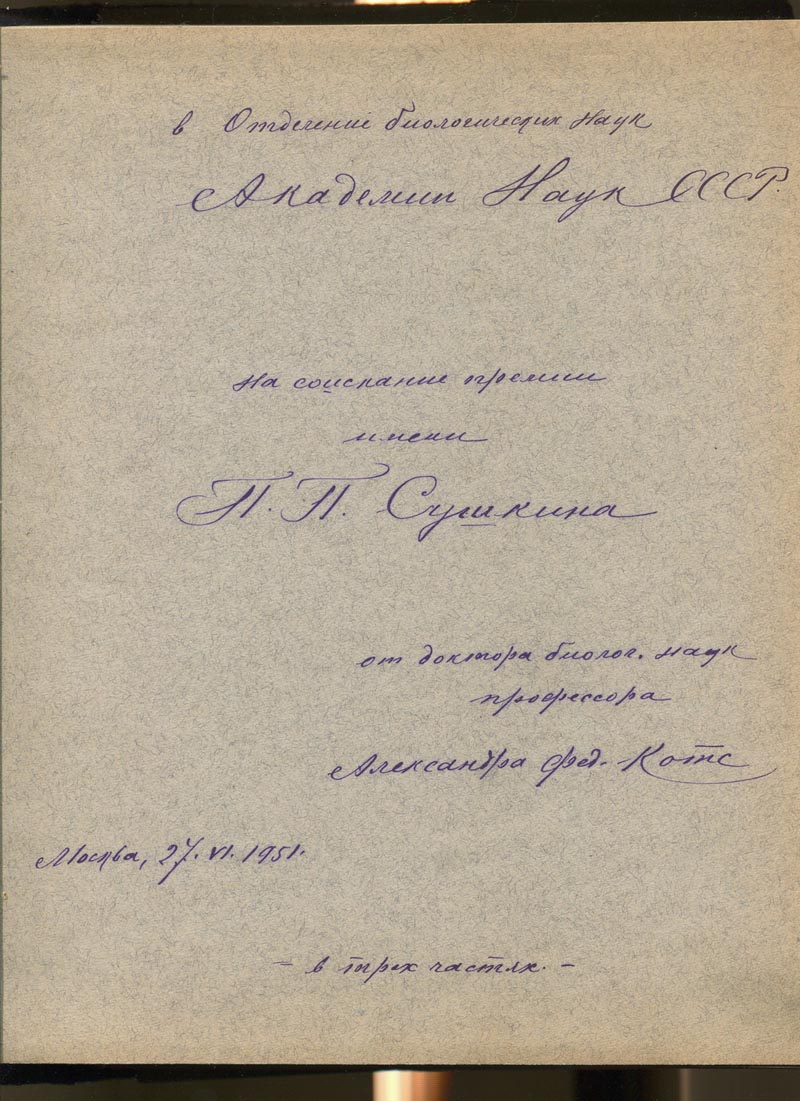 в Отделение биологических наук
Академии Наук СССР.
на соискание премии
имени
П. П. Сушкина
от доктора биолог. наук
профессора
Александра Фед. Котс
Москва, 27. VI. 1951.
– в трех частях. –